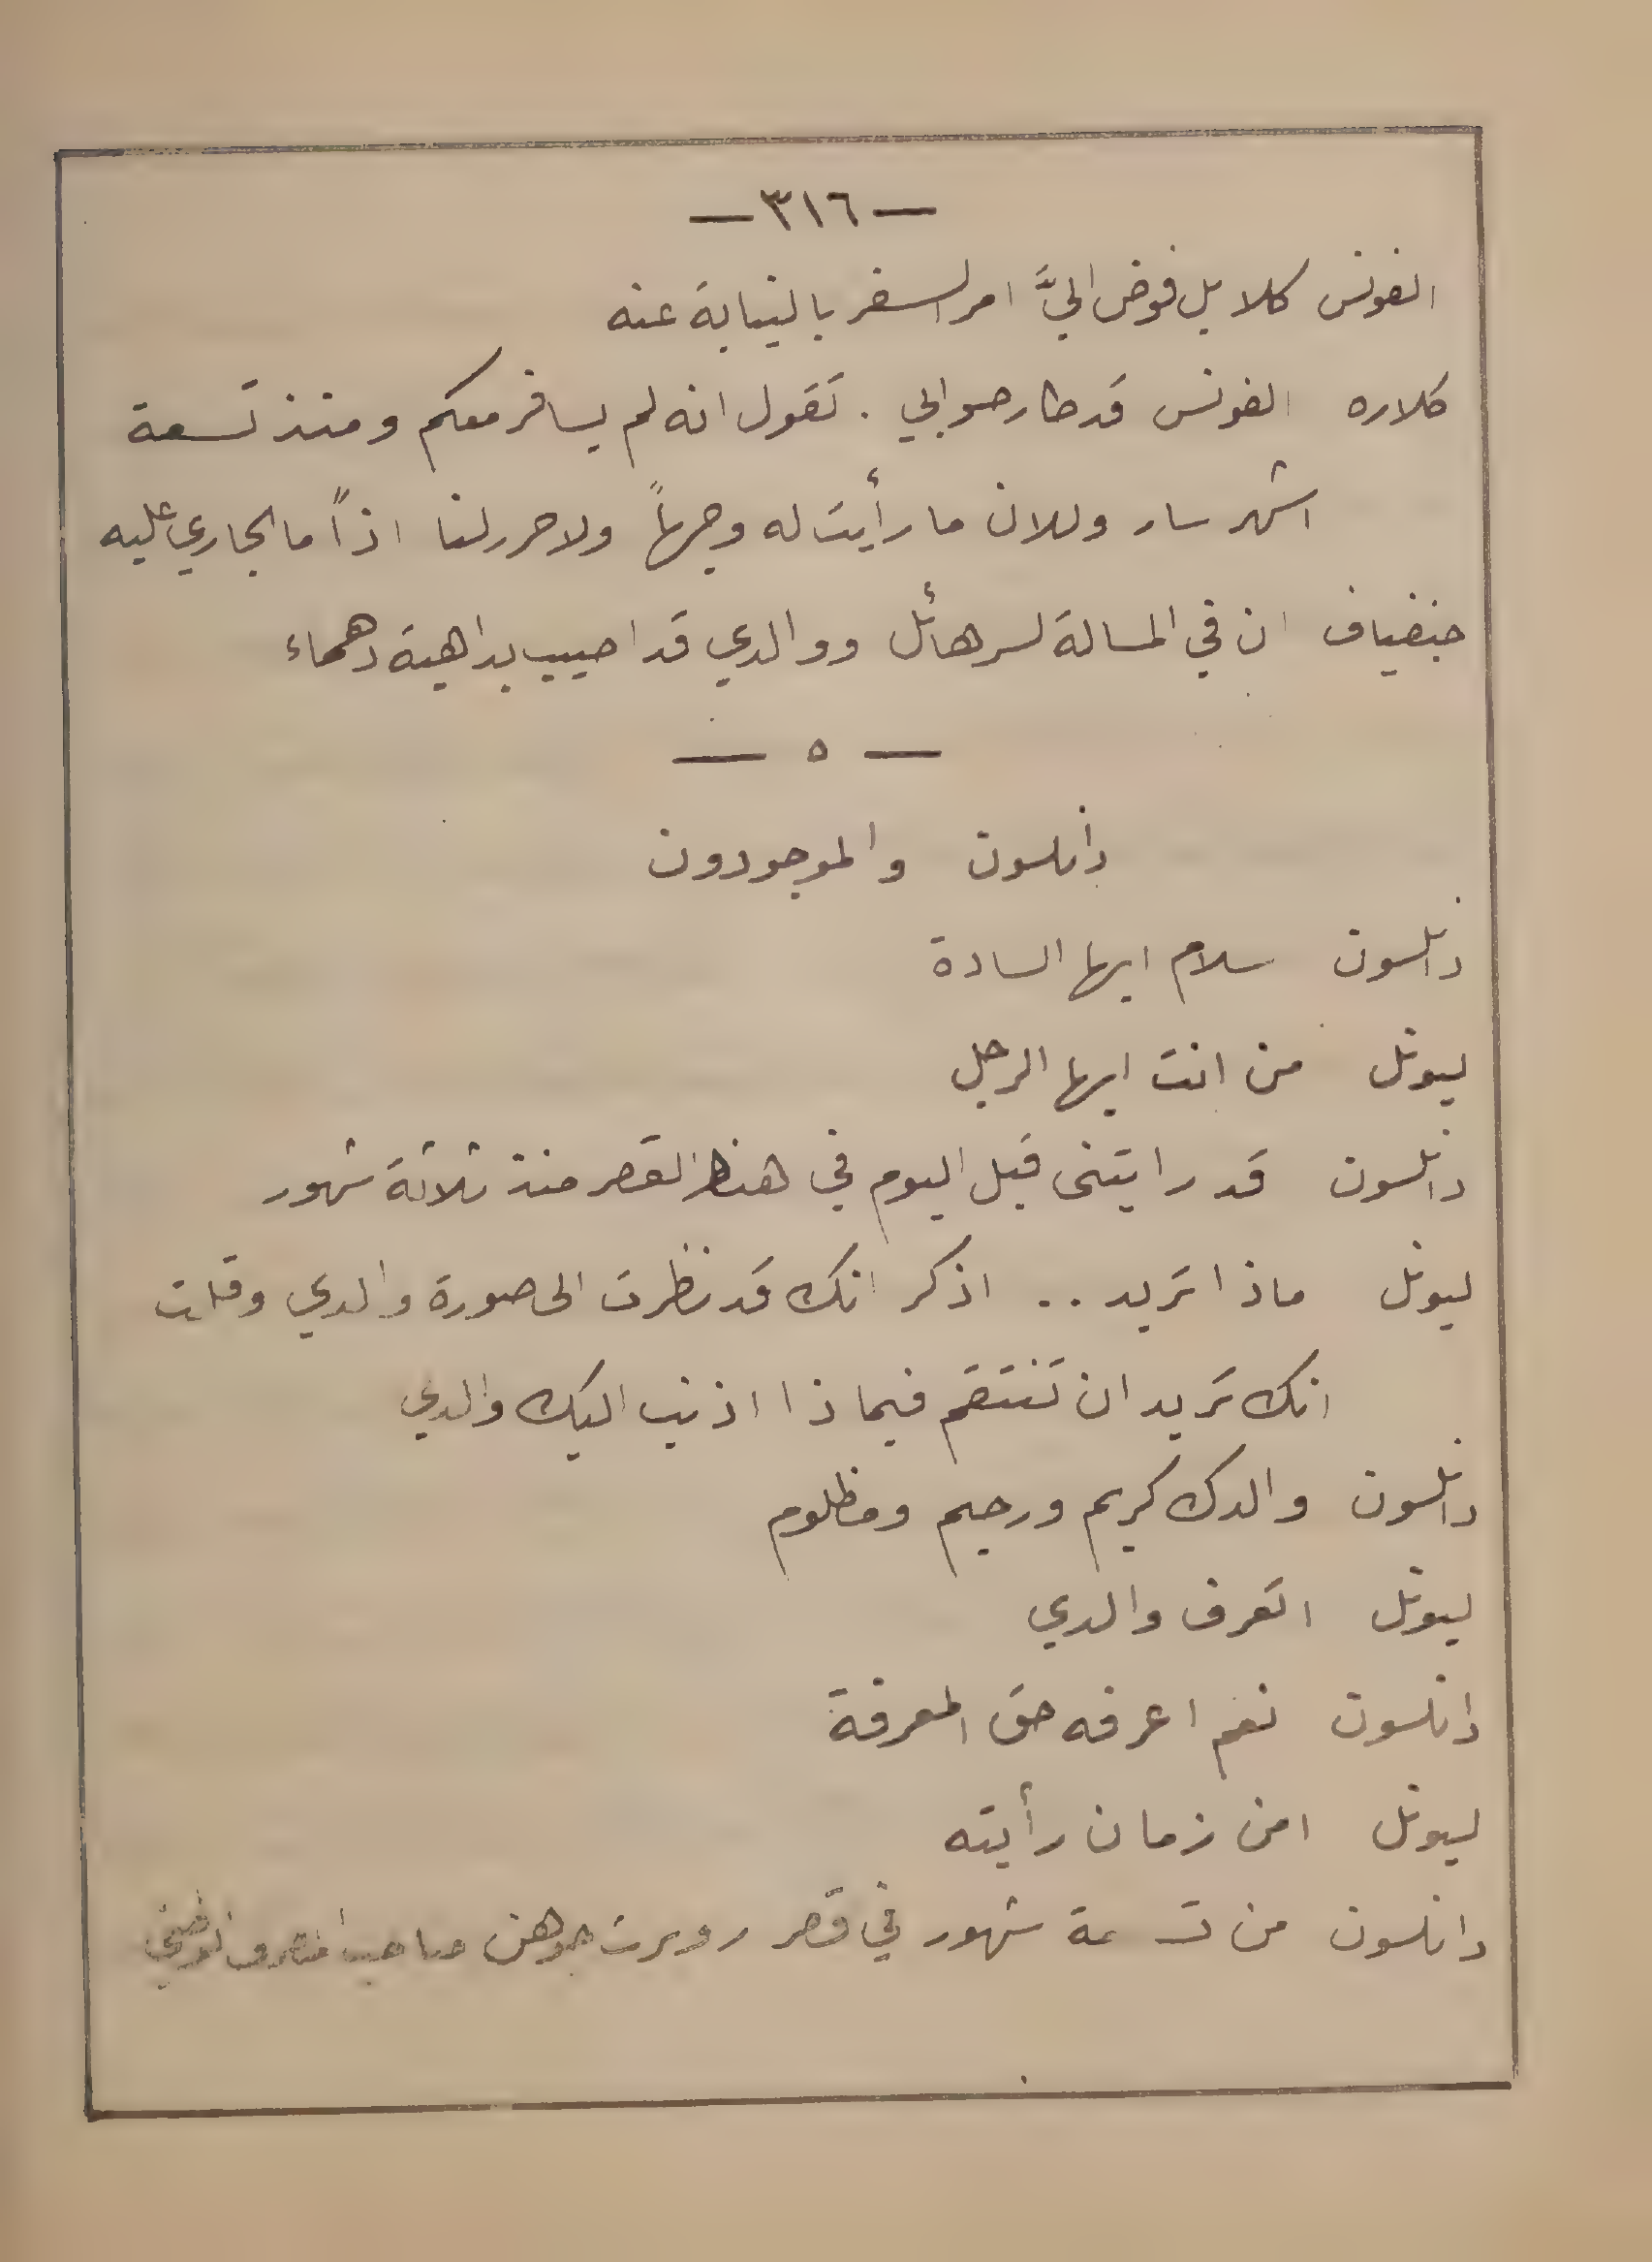 — ٣١٦ —
الفونس كلا بل فوض اليَّ امر السفر بالنيابة عنه
كلاره الفونس قد طار صوابي . تقول انه لم يسافر معكم ومنذ تسعة
اشهر سار وللان ما رأيت له وجهاً ولا حرر لنا اذاً ما الجاري عليه
جنفياف ان في المسالة لسر هائل ووالدي قد اصيب بداهية دهماء
— ٥ —
دانلسون والموجودون
دانلسون سلام ايها السادة
ليونل من انت ايها الرجل
دانلسون قد رايتنى قبل اليوم في هذا القصر منذ ثلاثة شهور
ليونل ماذا تريد .. اذكر انك قد نظرت الى صورة والدي وقلت
انك تريد ان تنتقم فيماذا اذنب اليك والدي
دانلسون والدك كريم ورحيم ومظلوم
ليونل اتعرف والدي
دانلسون نعم اعرفه حق المعرفة
ليونل امن زمان رأيته
دانلسون من تسعة شهور في قصر روبرت جوهن صاحب